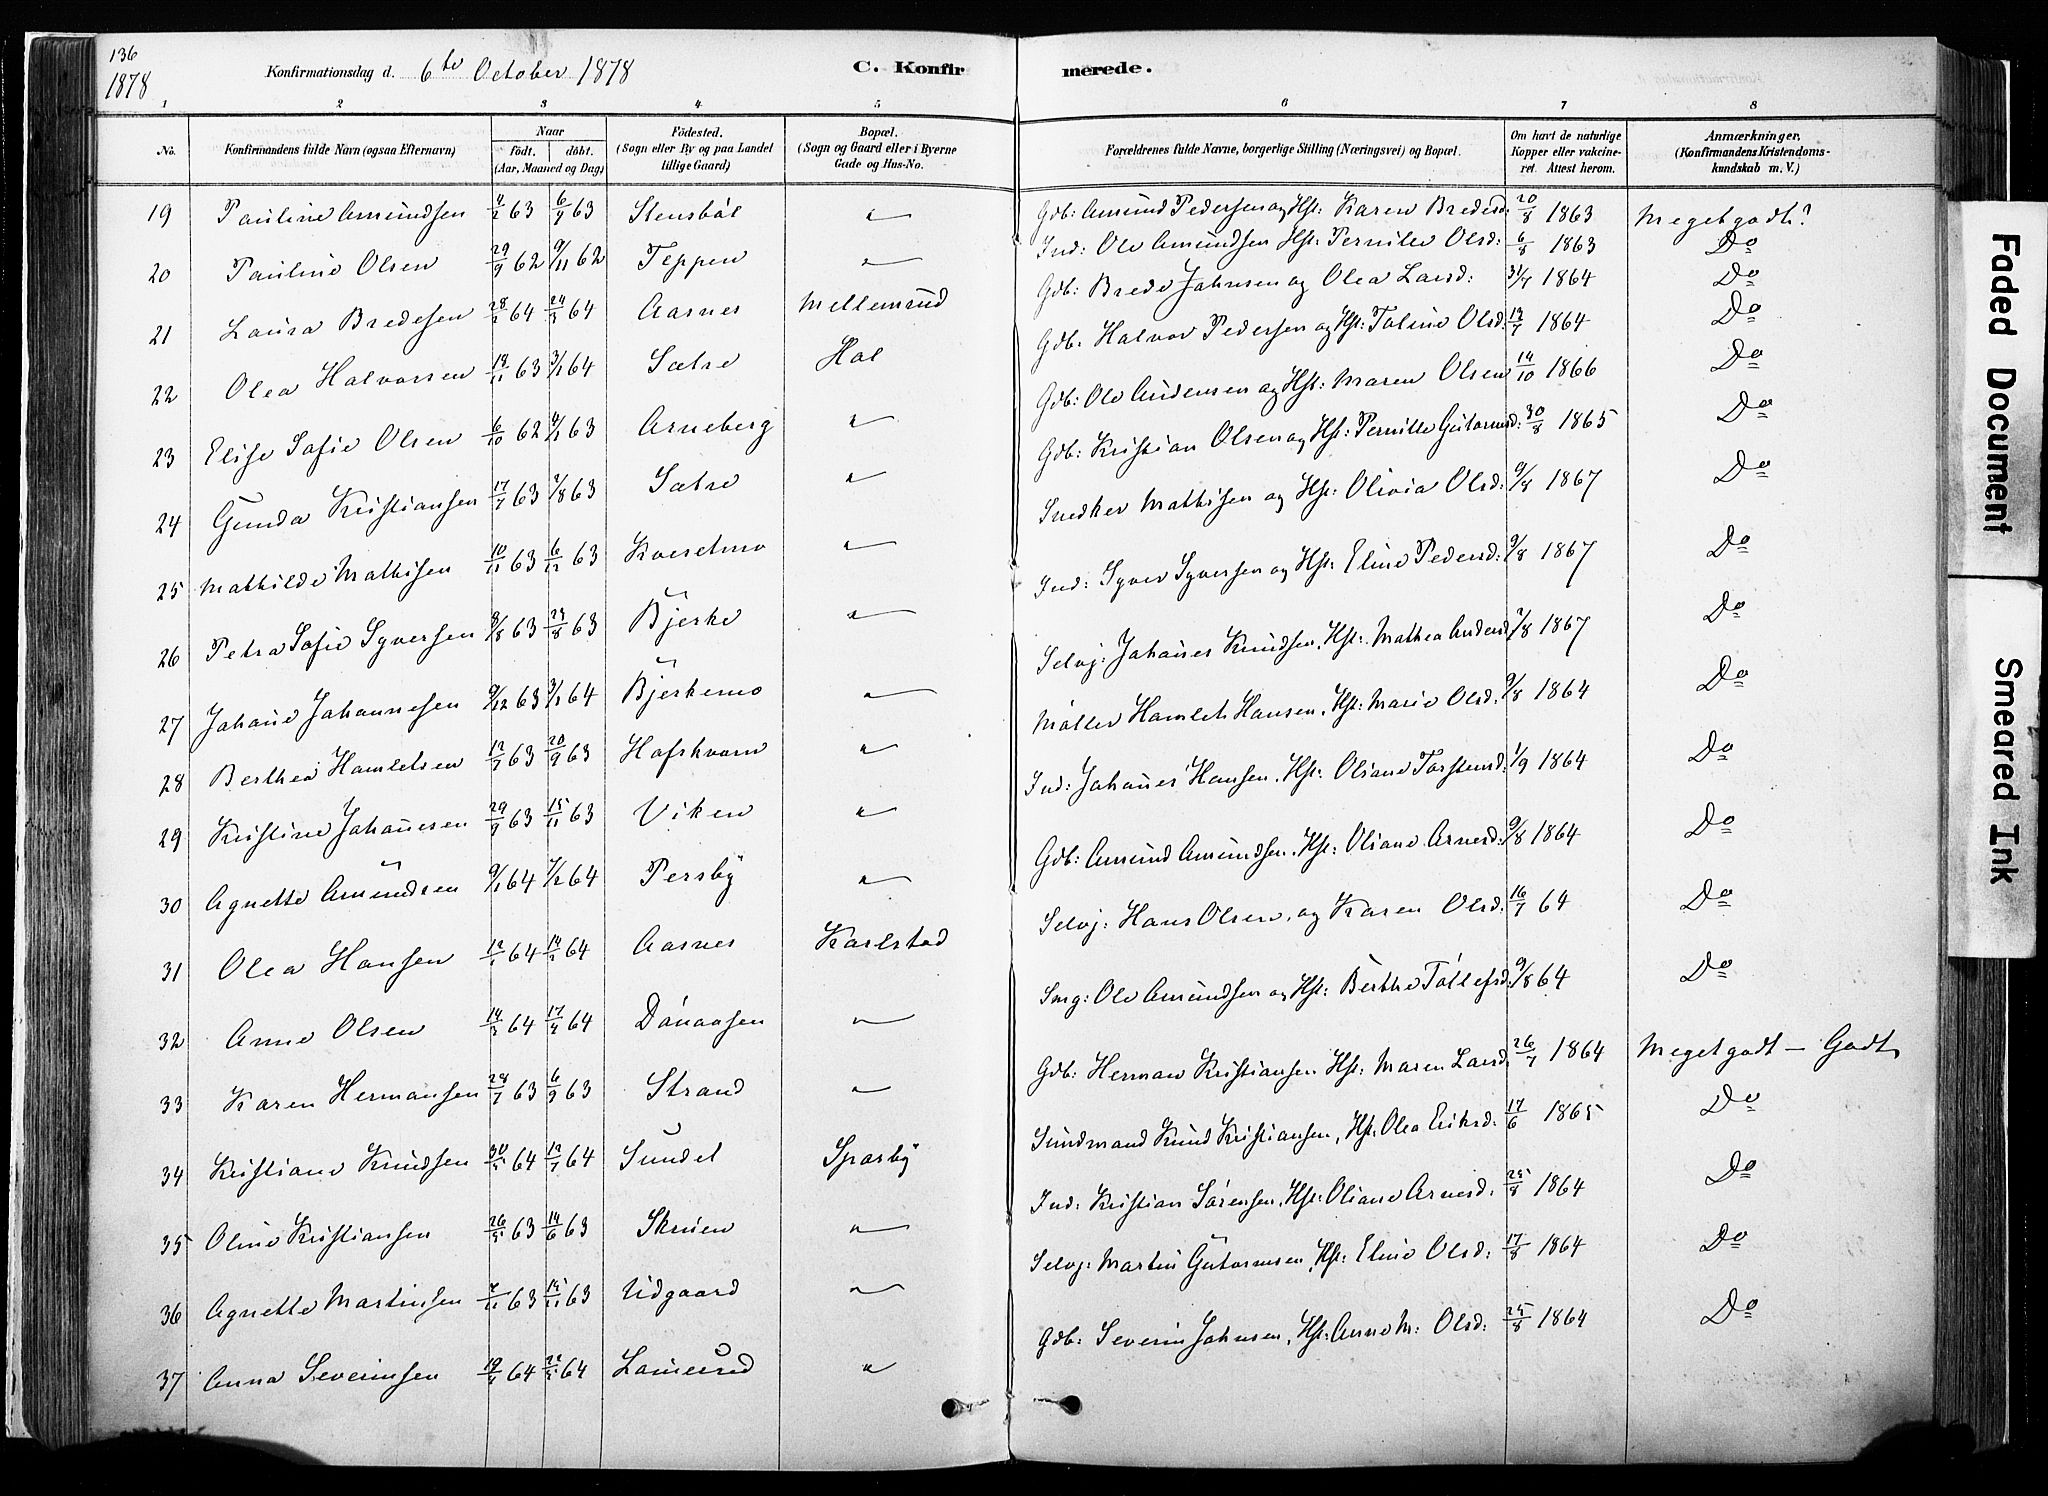 136
1878
Konfirmationsdag d. 6te October 1878
C. Konfirmerede.
1 2 3 4 5 6 7 8
No.
Konfirmandens fulde Navn (ogsaa Efternavn)
Naar
født. døbt.
(Aar, Maaned og Dag)
Födested.
(Sogn eller By og paa Landet
tillige Gaard)
Bopæl.
(Sogn og Gaard eller i Byerne
Gade og Hus-No.
Forældrenes fulde Navne, borgerlige Stilling (Næringsvei) og Bopæl.
Om havt de naturlige
Kopper eller vakcine-
ret. Attest herom.
Anmærkninger.
(Konfirmandens Kristendoms-
kundskab m. V.)
19 Pauline Amundsen 63 6/9 63 Stensböl " Gdb: Amund Pedersen og Hst: Karen Bredesd: 20/8 1863 Meget godt?
20 Pauline Olsen 29/9 62 9/11 62 Teppen " Ind: Ole Amundsen Hst: Pernille Olsd: 6/8 1863 Do
21 Laura Bredesen 64 64 Aasnes Mellemrud Gdb: Brede Johnsen og Olea Larsd: 31/7 1864 Do
22 Olea Halvorsen 63 3/1 64 Sætre Hol Gdb. Halvor Pedersen og Hst: Toline Olsd: 1864 Do
23 Elise Sofie Olsen 6/10 62 63 Arneberg " Gdb: Ole Andersen og Hst: Maren Olsen 14/10 1866 Do
24 Gunda Kristiansen 17/7 63 63 Sætre " Gdb: Kristian Olsen og Hst: Pernille Gutormsd: 30/8 1865 Do
25 Mathilde Mathisen 10/11 63 6/12 63 Kveselmo " Snedker Mathisen og Hst: Olivia Olsd: 9/8 1867 Do
26 Petra Sofie Syversen 63 23/8 63 Bjerke " Ind: Syver Syversen og Hst: Eline Pedersd: 9/8 1867 Do
27 Johane Johannesen 9/12 63 3/1 64 Bjerkemo " Selvj: Johanes Knudsen, Hst: Mathea Andersd 1867 Do
28 Berthea Hamletsen 63 20/9 63 Hofskvern " Møller Hamlet Hansen, Hst: Marie Olsd. 9/8 1864 Do
29 Kristine Johannesen 29/9 63 15/11 63 Viken " Ind: Johanes Hansen, Hst: Oliane Torstensd: 1/9 1864 Do
30 Agnette Amundsen 9/1 64 64 Persby " Gdb: Amund Amundsen, Hst: Oliane Arnesd: 9/8 1864 Do
31 Olea Hansen 64 64 Aasnes Karlstad Selvj: Hans Olsen, og Karen Olsd: 16/7 64 Do
32 Anne Olsen 64 64 Dónaasen " Smg: Ole Amundsen og Hst: Berthe Tollefsd: 9/8 64 Do
33 Karen Hermansen 63 6/9 63 Strand " Gdb: Herman Kristiansen Hst: Maren Larsd: 26/7 1864 Meget godt – Godt
34 Kristiane Knudsen 64 64 Sundet Sparby Sundmand Knud Kristiansen, Hst: Olea Eriksd: 17/6 1865 Do
35 Oline Kristiansen 26/5 63 14/6 63 Skruen " Ind: Kristian Sörensen, Hst: Oliane Arnesd: 25/8 1864 Do
36 Agnette Martinsen 63 15/11 63 Udgaard " Selvj: Martin Gutormsen, Hst: Eline Olsd: 17/8 1864 Do
37 Anna Severinsen 64 64 " Gdb: Severin Johnsen, Hst: Anne M: Olsd: 25/8 1864 Do
Faded Document
Smeared Ink